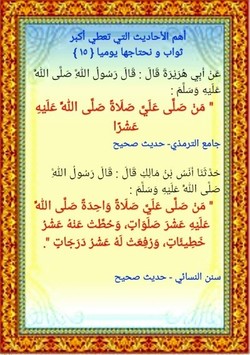 أهم الأحاديث التي تعطي أكبر
ثواب و نحتاجها يوميا { ١٥ }
عَنْ أَبِي هُرَيْرَةَ قَالَ : قَالَ رَسُولُ اللَّهِ صَلَّى اللَّهُ
عَلَيْهِ وَسَلَّمَ :
" مَنْ صَلَّى عَلَيَّ صَلَاةً صَلَّى اللَّهُ عَلَيْهِ
عَشْرًا
جامع الترمذي- حديث صحيح
حَدَّثَنَا أَنَسُ بْنُ مَالِكٍ قَالَ : قَالَ رَسُولُ اللَّهِ
صَلَّى اللَّهُ عَلَيْهِ وَسَلَّمَ :
" مَنْ صَلَّى عَلَيَّ صَلَاةً وَاحِدَةً صَلَّى اللَّهُ
عَلَيْهِ عَشْرَ صَلَوَاتٍ، وَحُطَّتْ عَنْهُ عَشْرُ
خَطِيئَاتٍ، وَرُفِعَتْ لَهُ عَشْرُ دَرَجَاتٍ ".
سنن النسائي - حديث صحيح